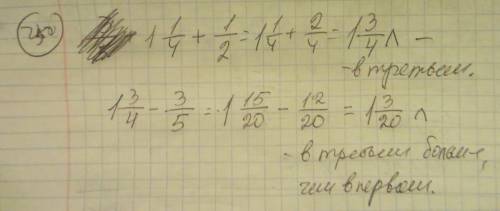 250
1 1/4 + 1/2 = 1 1/4 + 2/4 = 1 3/4 л –
- в третьем.
1 3/4 - 3/5 = 1 15/20 - 12/20 = 1 3/20 л
- в третьем больше,
чем в первом.